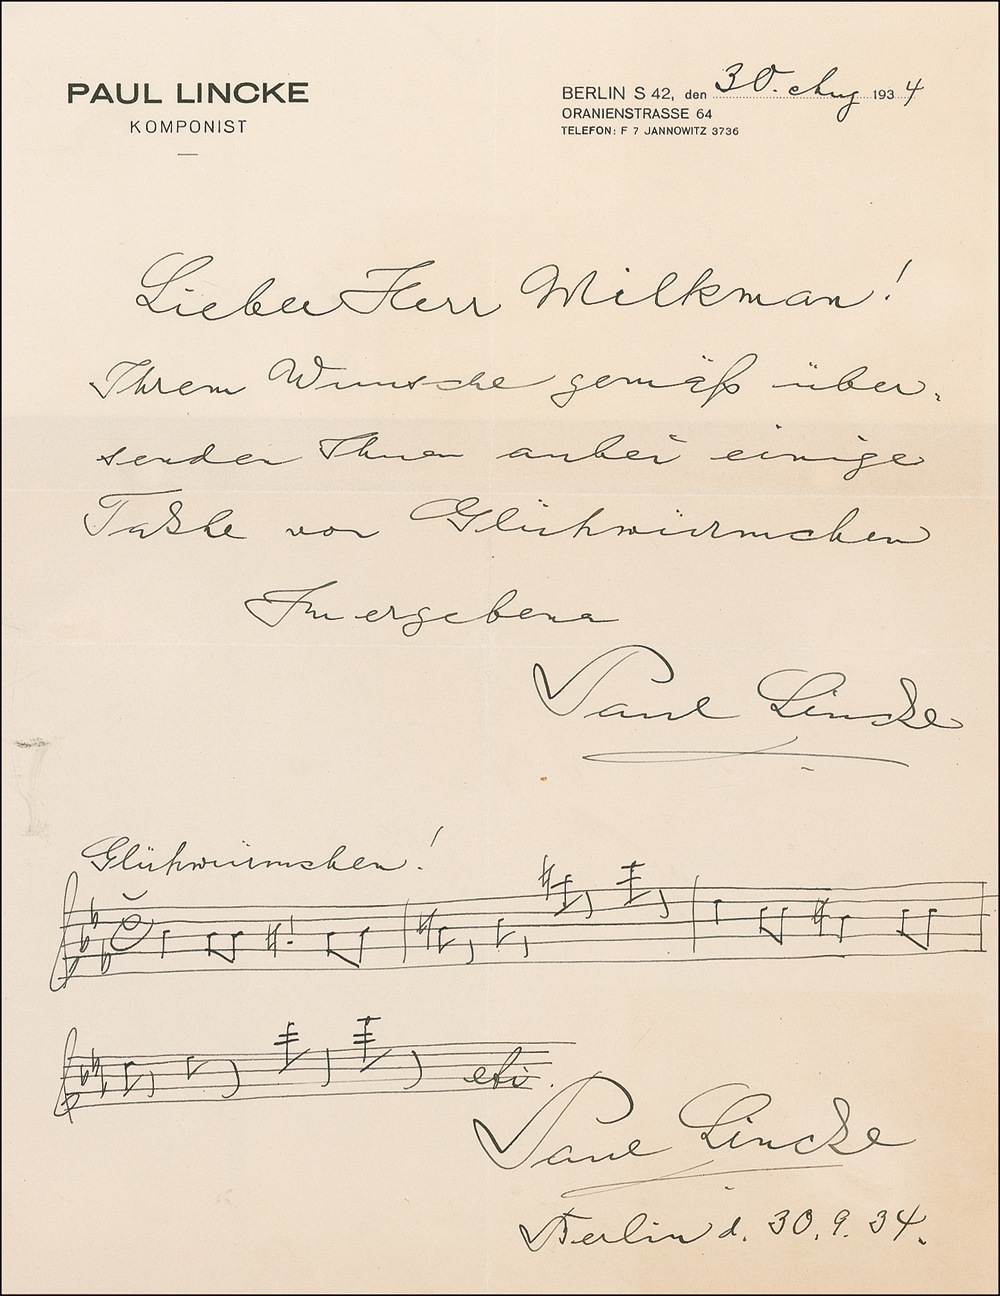 PAUL LINCKE
KOMPONIST
BERLIN S 42, den 30. Aug 1934
ORANIENSTRASSE 64
TELEFON: F 7 JANNOWITZ 3736
Lieber Herr Milkman!
Ihrem Wunsche gemäß über-
senden Ihnen anbei einige
Takte von Glühwürmchen
Ihr ergebener
Paul Lincke
Glühwürmchen!
etc.
Paul Lincke
Berlin d. 30.9.34.